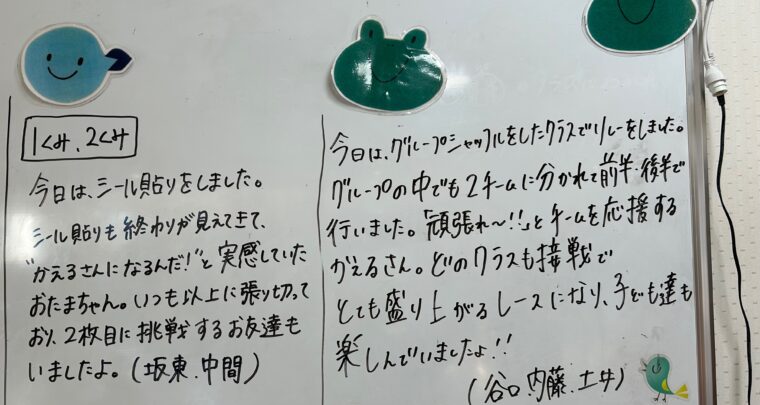 1くみ、2くみ
今日は、シール貼りをしました。
シール貼りも終わりが見えてきて、
"かえるさんになるんだ!"と実感していた
おたまちゃん。いつも以上に張り切って
おり、2枚目に挑戦するお友達も
いましたよ。(坂東、中間)
今日は、グループシャッフルをしたクラスでリレーをしました。
グループの中でも2チームに分かれて前半・後半で
行いました。「頑張れ〜!!」とチームを応援する
かえるさん。どのクラスも接戦で
とても盛り上がるレースになり、子ども達も
楽しんでいましたよ!!
(谷口、内藤、土井)